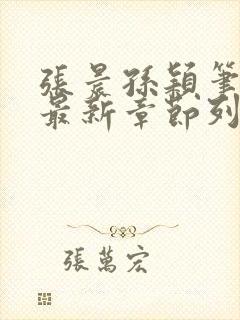 張晨孫穎筆
最新章節列
張萬宏